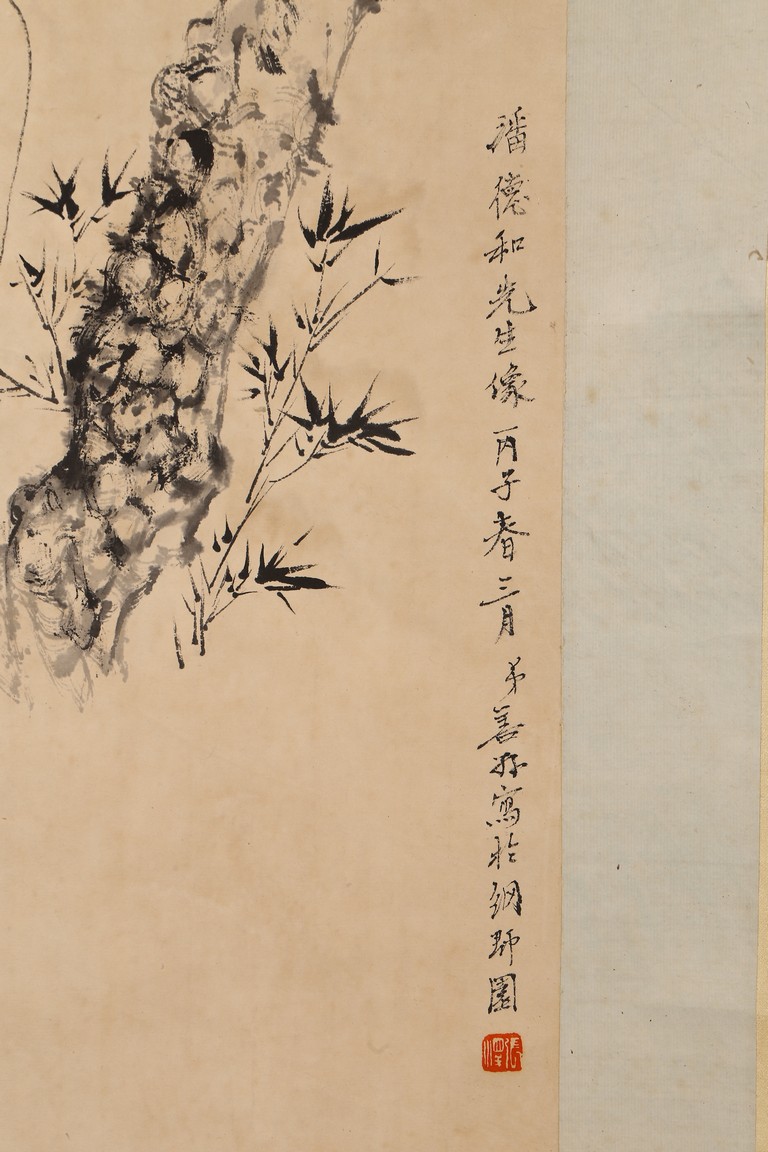 潘德和先生像丙子春三月弟善孖寫於網師園
張澤